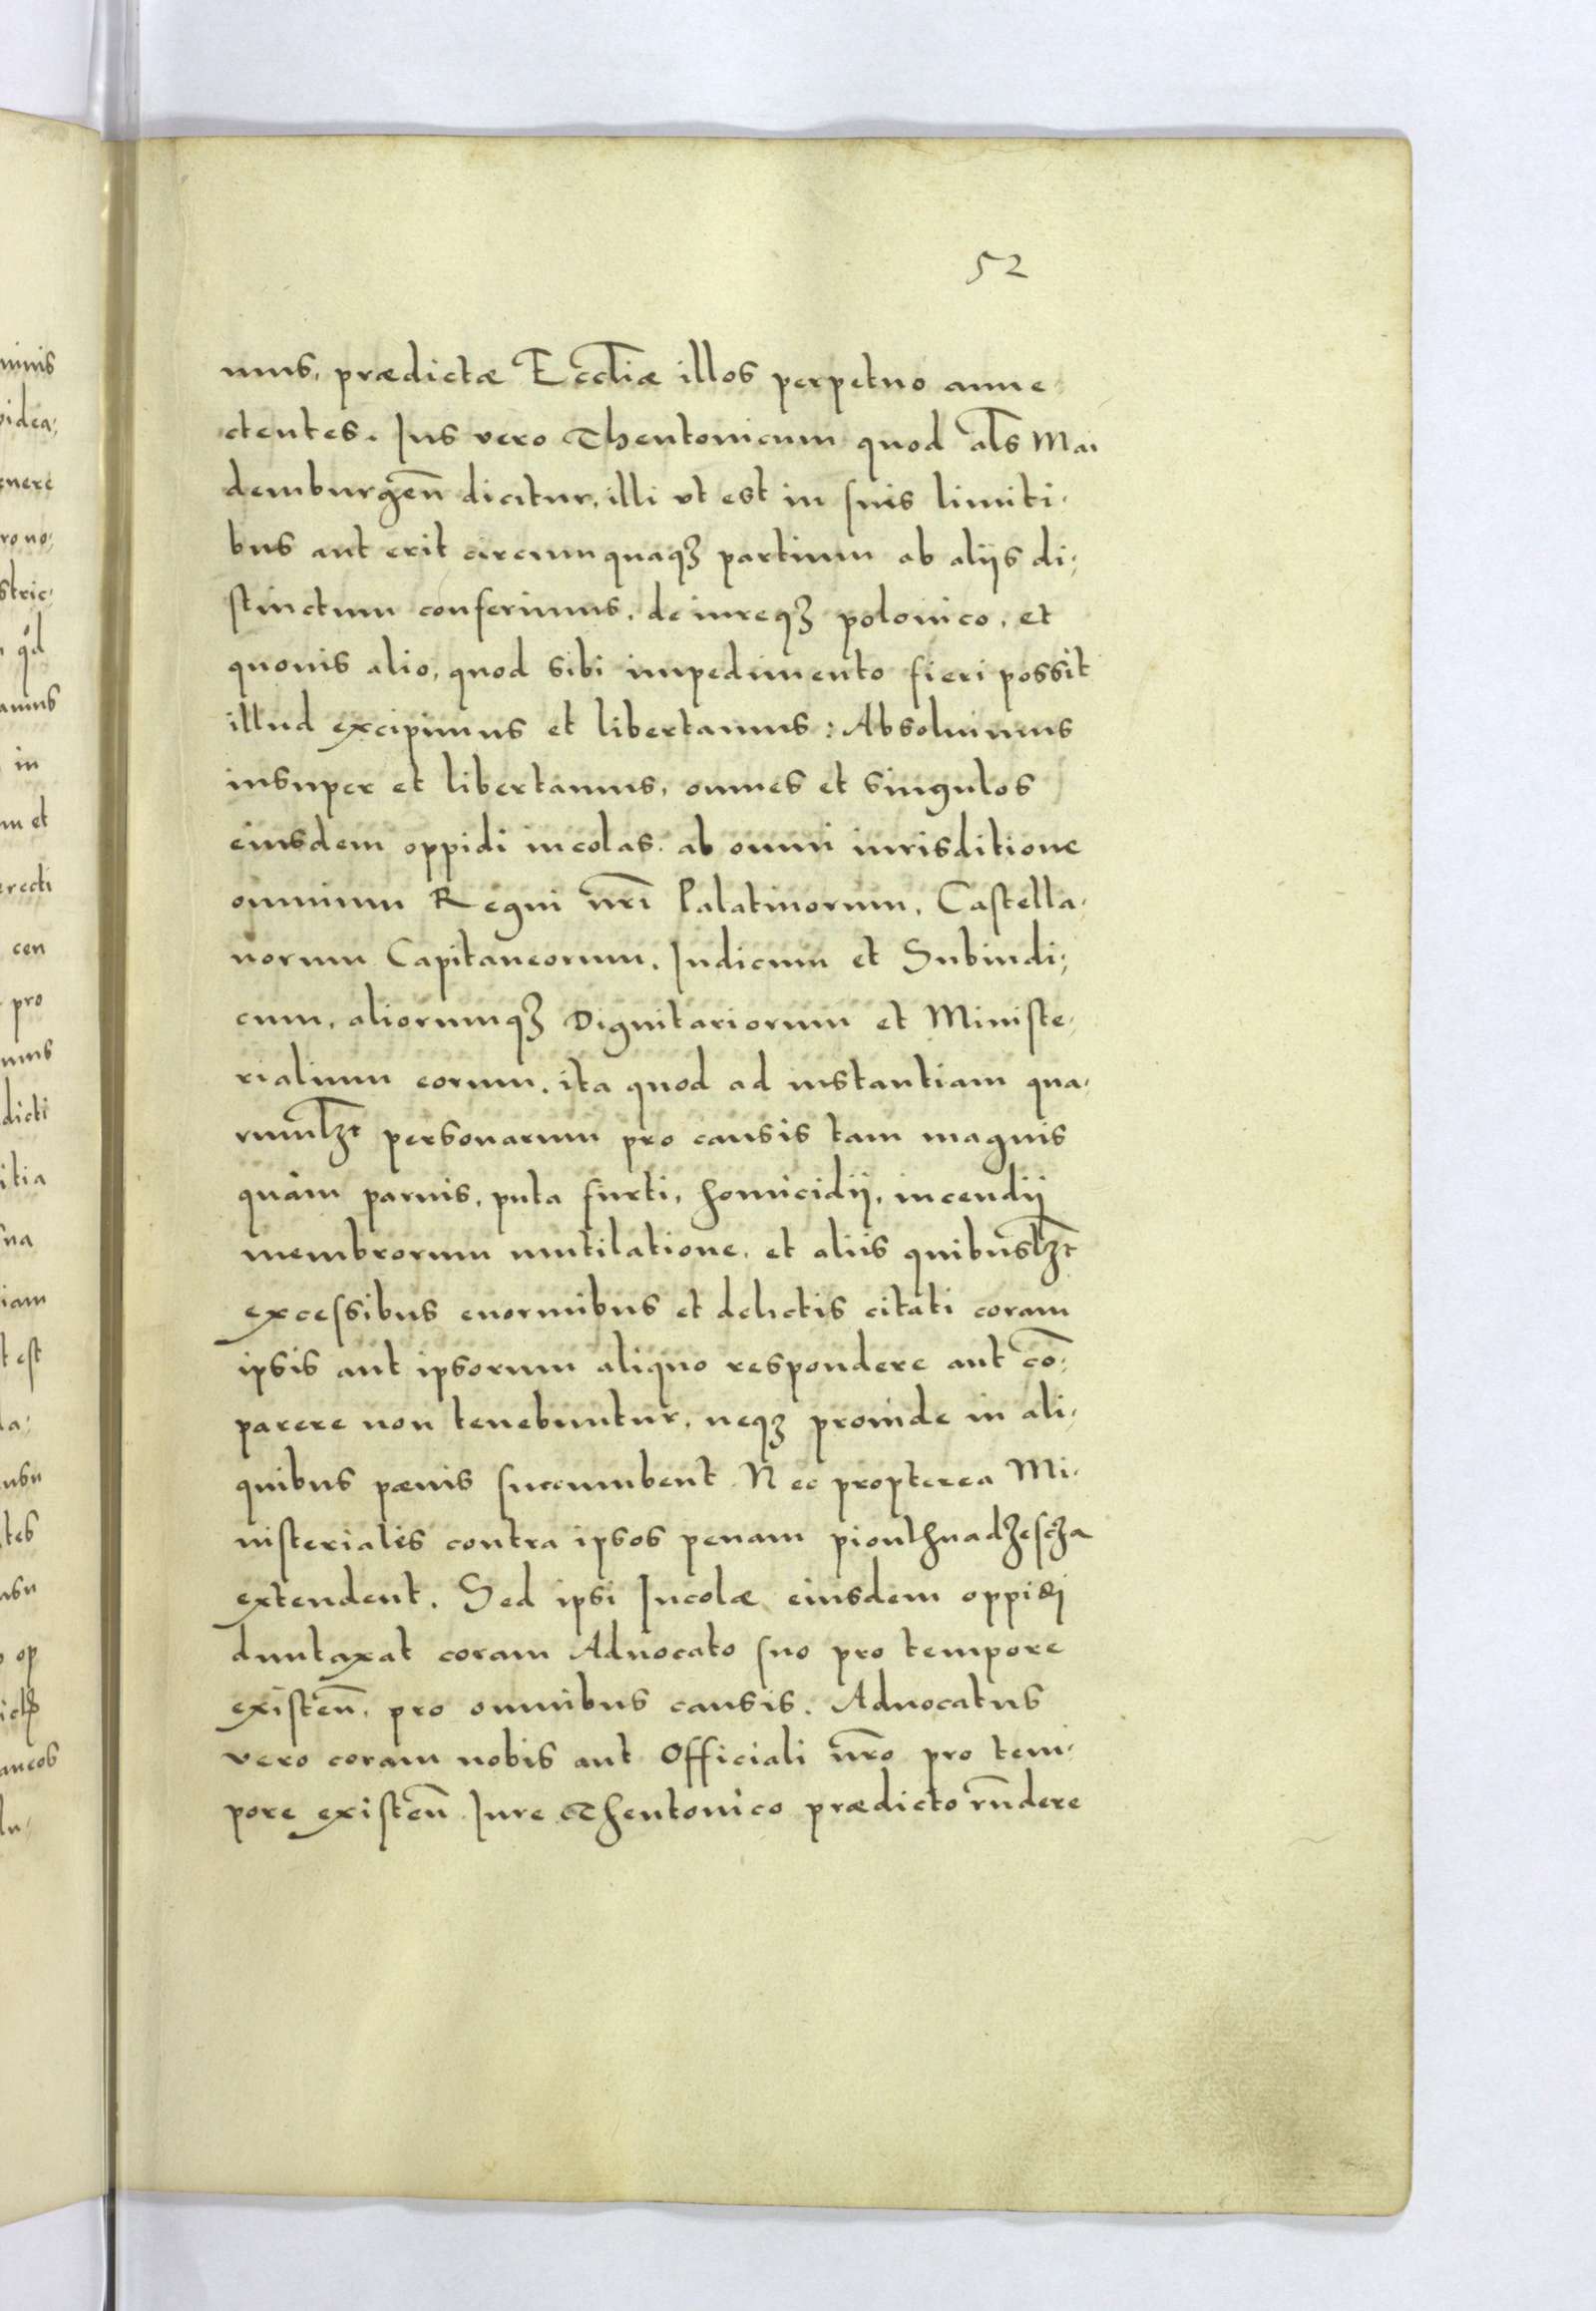 52
mus, prædictæ Eccl̄iæ illos perpetuo anne
ctentes. Jus vero Theutonicum quod al̄s Mai
demburgen̄ dicitur, illi ut est in suis limiti-
bus aut erit circumquaqꝫ partium ab aliis di-
stinctum conferimus, de iureqꝫ polonico, et
quouis alio, quod sibi impedimento fieri possit
illud excipimus et libertamus: Absoluimus
insuper et libertamus, omnes et singulos
eiusdem oppidi incolas. ab omni iurisditione
omnium Regni nr̄i Palatinorum, Castella-
norum Capitaneorum, Judicum et Subiudi-
cum, aliorumqꝫ Dignitariorum et Ministe-
rialium eorum. ita quod ad instantiam qua-
rumlꝫt personarum pro causis tam magnis
quam paruis, puta furti, homicidij, incendij
membrorum mutilatione, et aliis quibuslꝫt
excessibus enormibus et delictis citati coram
ipsis aut ipsorum aliquo respondere aut cō-
parere non tenebuntur, neqꝫ proinde in ali-
quibus pænis succumbent. Nec propterea Mi-
nisterialis contra ipsos penam pionthnadzescza
extendent. Sed ipsi Incolæ eiusdem oppidi
duntaxat coram Aduocato suo pro tempore
existen̄, pro omnibus causis. Aduocatus
vero coram nobis aut Officiali nr̄o pro tem-
pore existen̄ Jure Theutonico prædicto rn̄dere